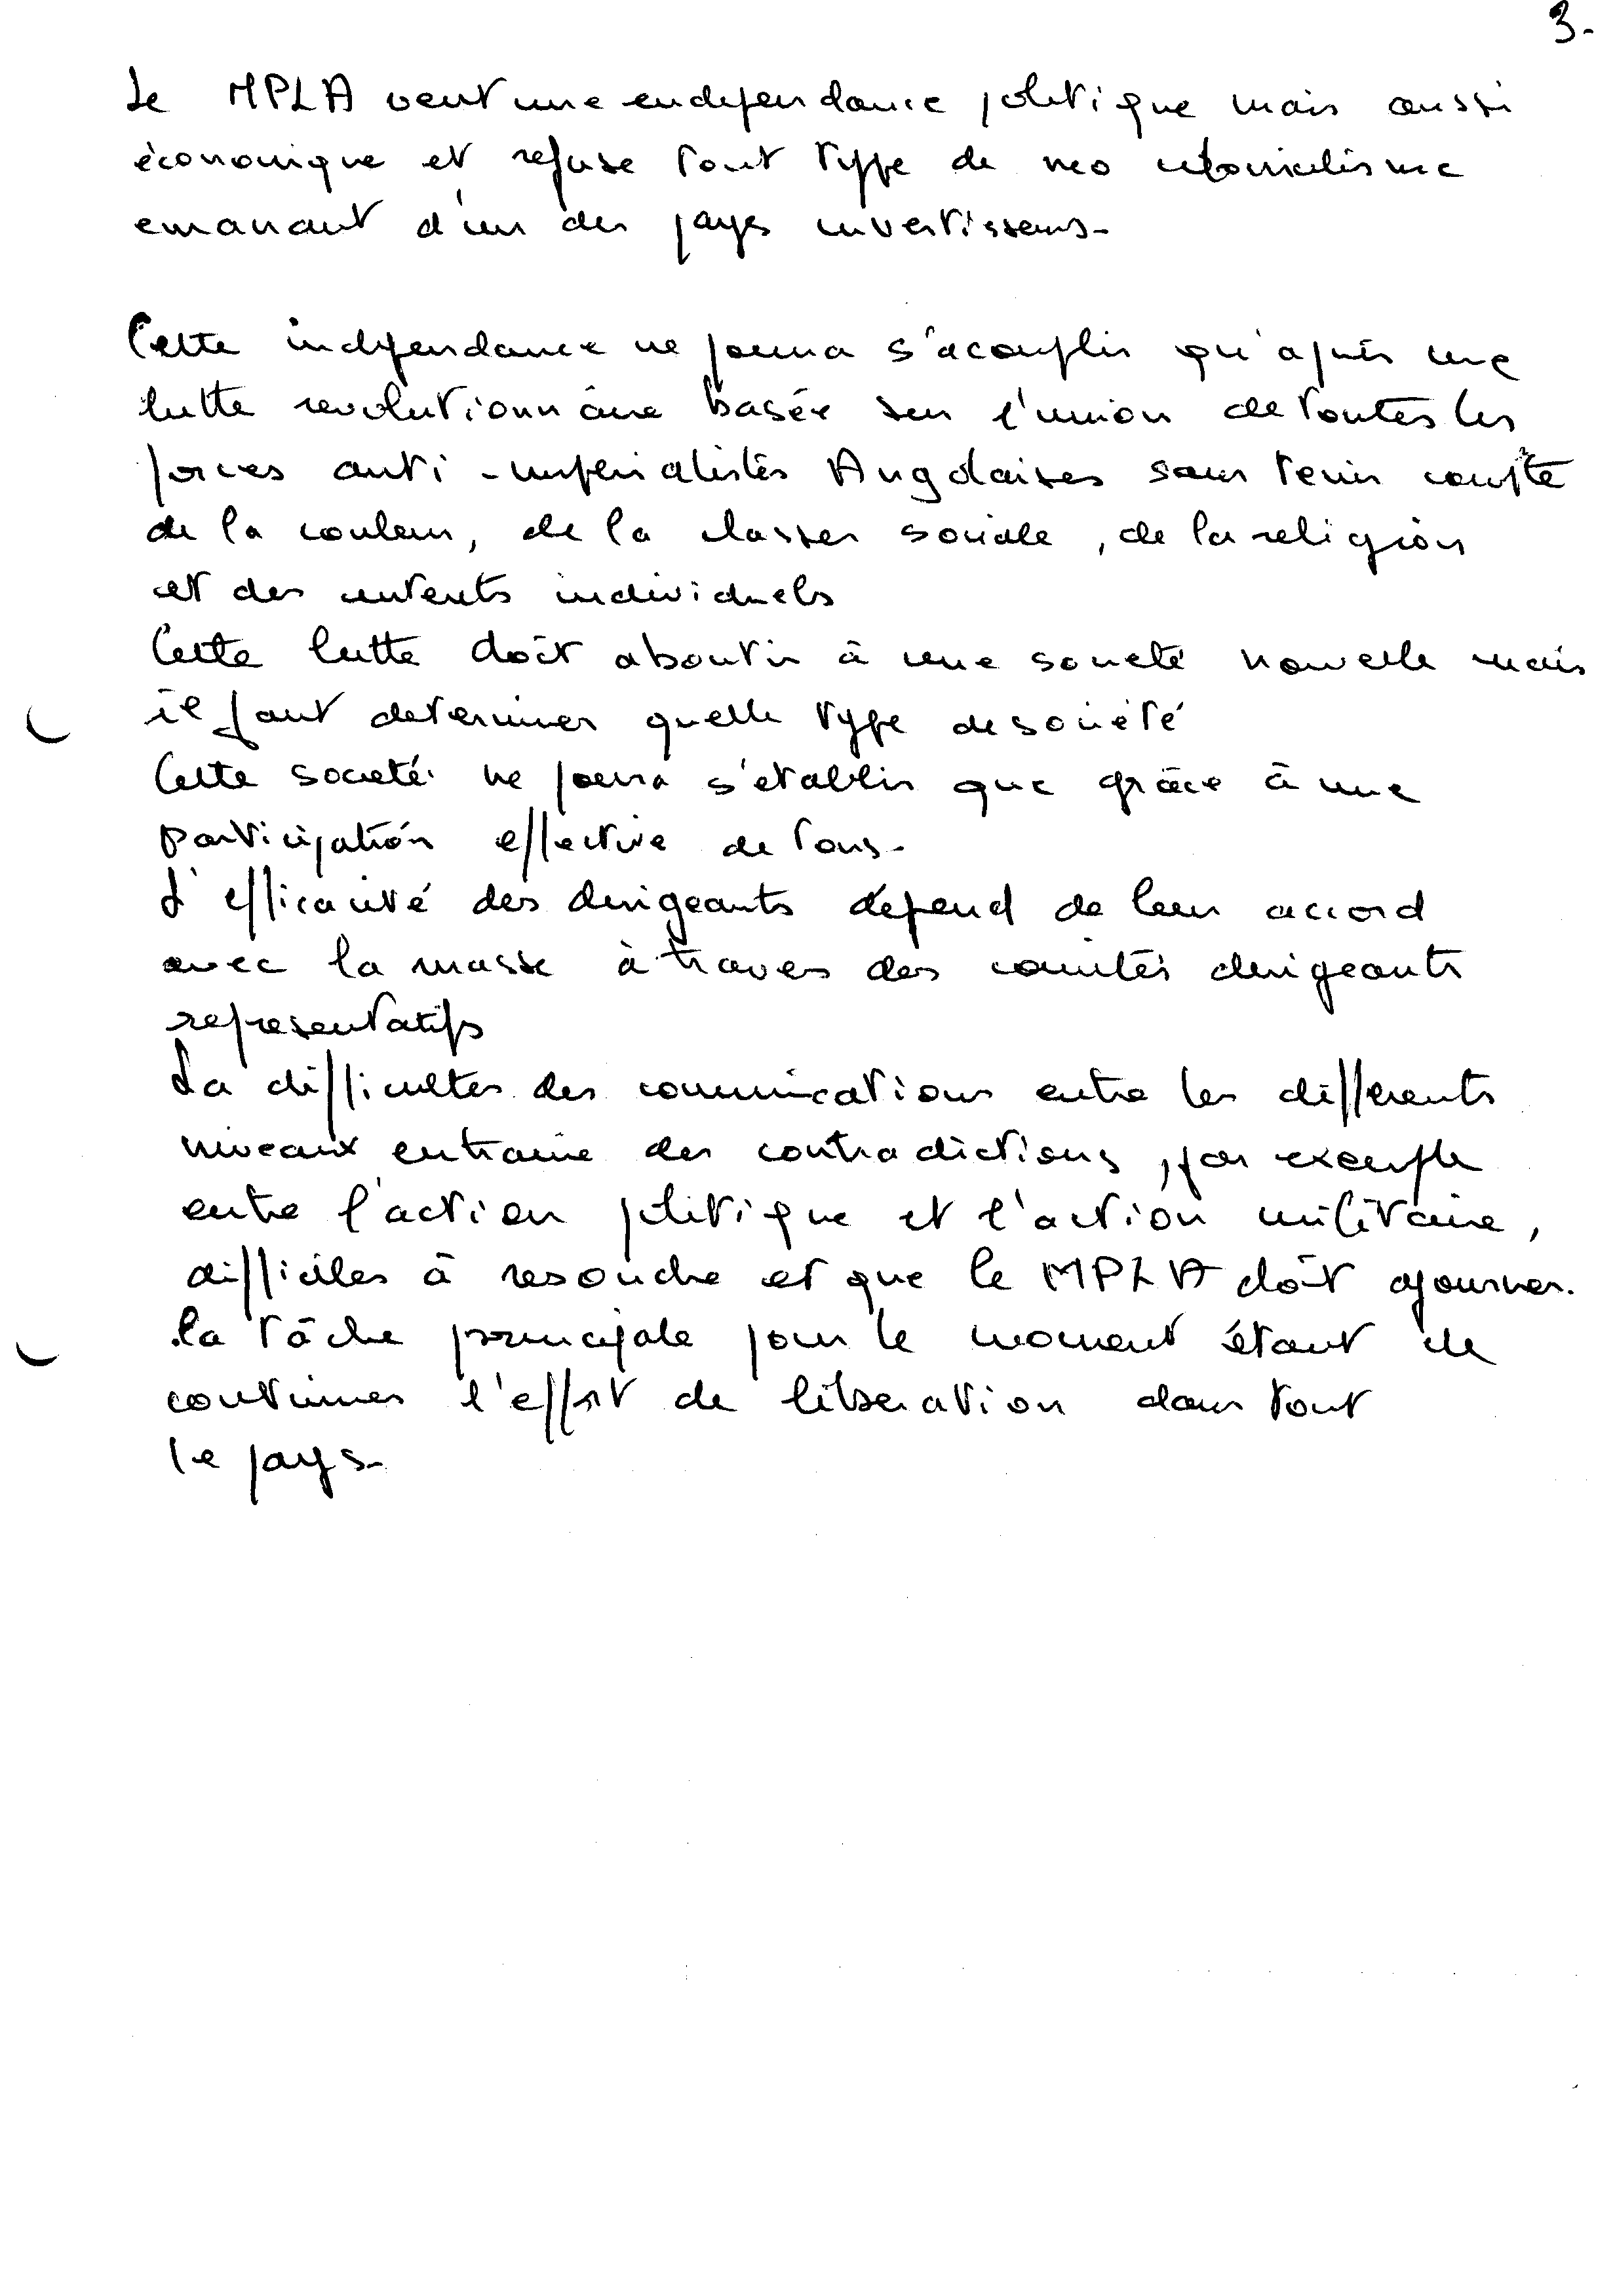 3.-
Le MPLA veut une endependance politique mais aussi
économique et refuse tout type de neo colonialisme
emanant d'un des pays investisseurs-
Cette independance ne pourra s'acomplir qu'après une
lutte revolutionnaire basée sur l'union de toutes les
forces anti-imperialistes Angolaises sans tenir compte
de la couleur, de la classer sociale, de la religion
et des interets individuels
Cette lutte doit aboutir à une société nouvelle mais
il faut determiner quelle type de société
Cette societé ne pourra s'etablir que grâce à une
participation effective de tous-
L'efficacité des dirigeants dépend de leur accord
avec la masse à travers des comités dirigeants
representatifs
La difficultes des communications entre les différents
niveaux entraine des contradictions, par exemple
entre l'action politique et l'action militaire,
difficiles à resoudre et que le MPLA doit ajourner.
la tâche principale pour le moment étant de
continuer l'effort de liberation dans tout
le pays-